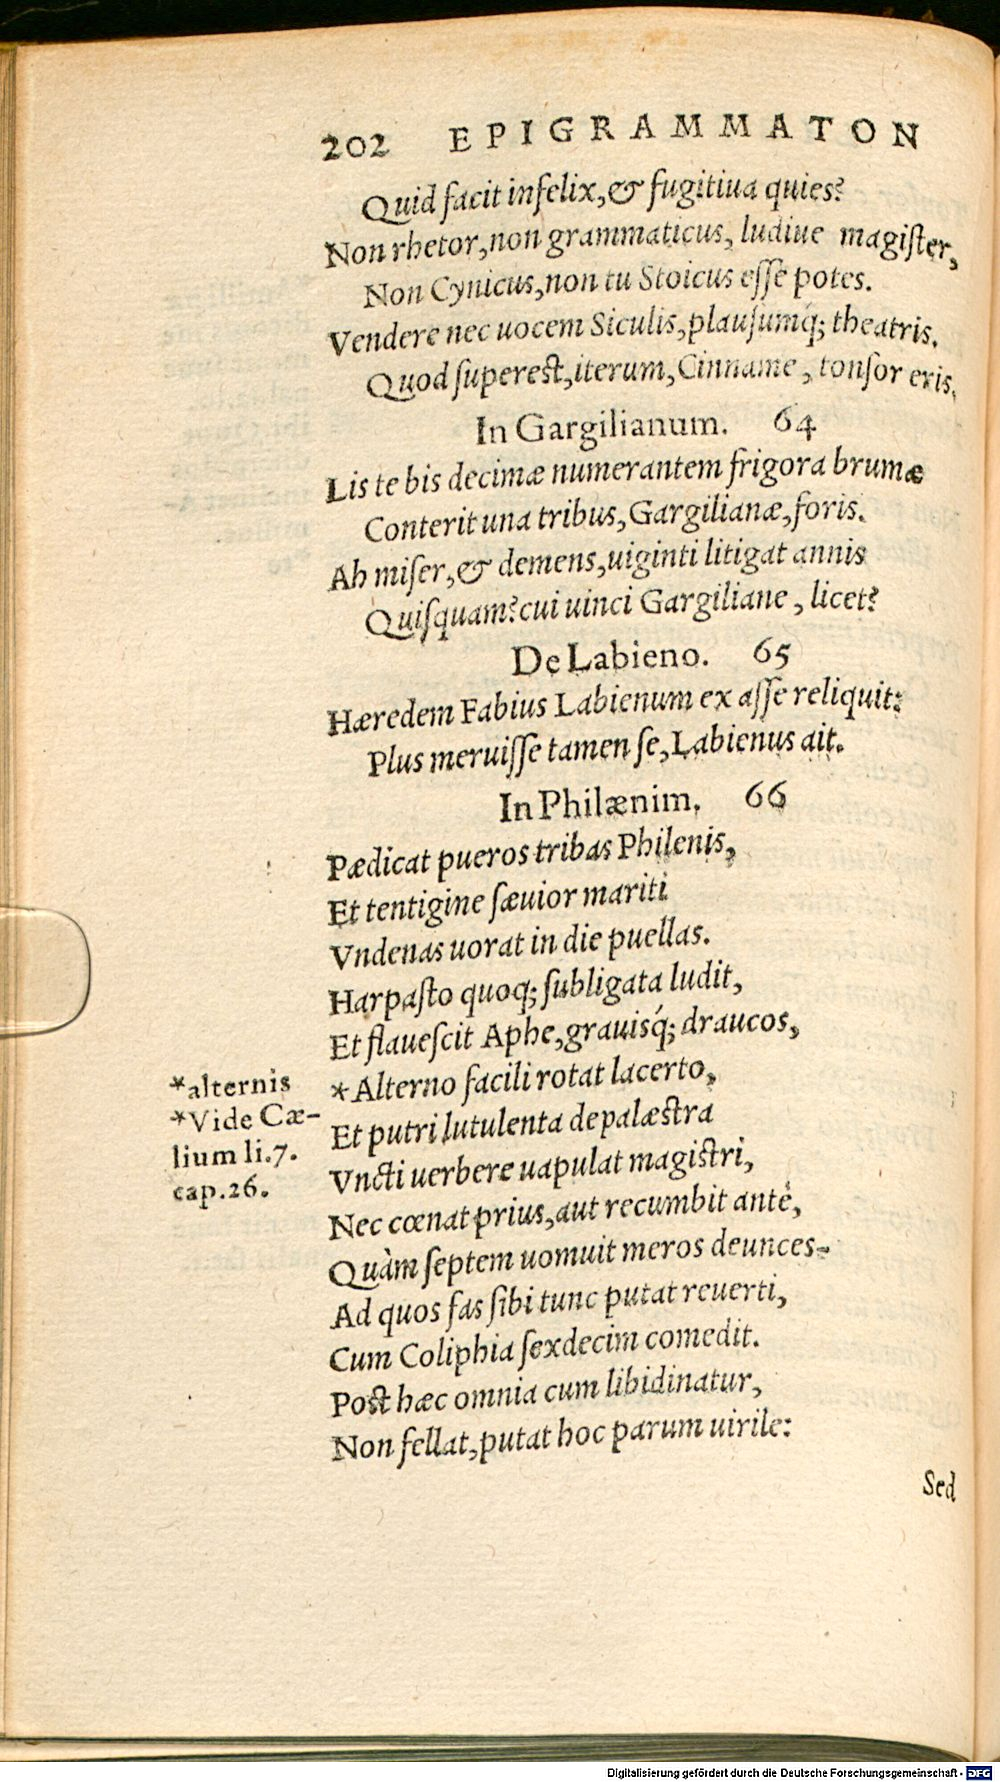 202 EPIGRAMMATON
Quid facit infelix, & fugitiua quies?
Non rhetor, non grammaticus, ludiue magister,
Non Cynicus, non tu Stoicus esse potes.
Vendere nec uocem Siculis, plausumq́; theatris.
Quod superest, iterum, Cinname, tonsor eris.
In Gargilianum. 64
Lis te bis decimæ numerantem frigora brumæ
Conterit una tribus, Gargilianæ, foris.
Ah miser, & demens, uiginti litigat annis
Quisquam? cui uinci Gargiliane, licet?
De Labieno. 65
Hæredem Fabius Labienum ex asse reliquit:
Plus meruisse tamen se, Labienus ait.
In Philænim. 66
Pædicat pueros tribas Philenis,
Et tentigine sæuior mariti
Vndenas uorat in die puellas.
Harpasto quoq; subligata ludit,
Et flauescit Aphe, grauisq́; draucos,
*alternis
*Alterno facili rotat lacerto,
*Vide Cæ-
Et putri lutulenta de palæstra
lium li.7.
Vncti uerbere uapulat magistri,
cap.26.
Nec cœnat prius, aut recumbit antè,
Quàm septem uomuit meros deunces-
Ad quos fas sibi tunc putat reuerti,
Cum Coliphia sexdecim comedit.
Post hæc omnia cum libidinatur,
Non fellat, putat hoc parum uirile:
Sed
Digitalisierung gefördert durch die Deutsche Forschungsgemeinschaft - DFG